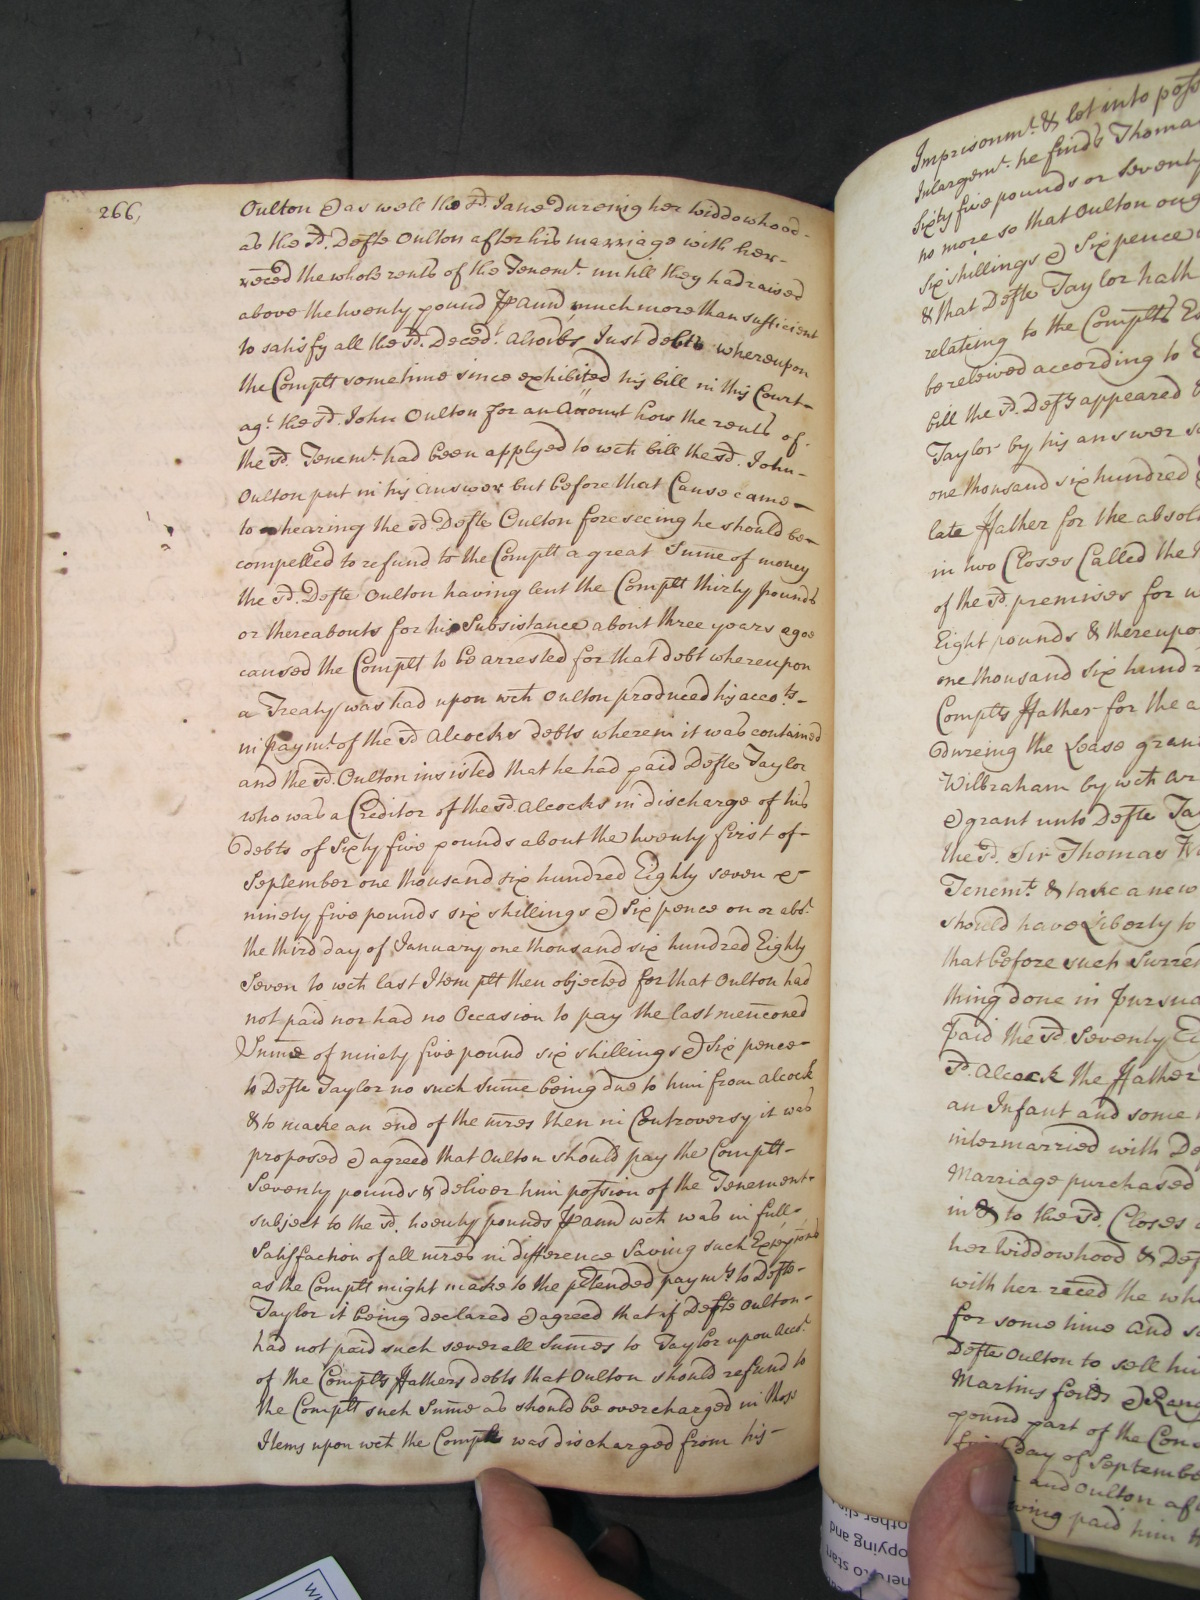 266,
Oulton & as well the sd. Jane dureing her widdowhood
as the sd. Defte Oulton after his marriage with her
reced the whole rents of the Tenemt. untill they had raised
above the twenty pound p ann much more than sufficient
to satisfy all the sd. Deced. Alcocks Just debts whereupon
the Complt sometime since exhibited his bill in this Court
agt. the sd. John Oulton for an Account how the rents of
the sd. Tenemt. had been applyed to wch bill the sd. John
Oulton put in his answer but before that Cause came
to hearing the sd Defte Oulton foreseeing he should be
compelled to refund to the Complt a great Sume of money
the sd. Defte Oulton having lent the Complt thirty pounds
or thereabouts for his Subsistance about three years agoe
caused the Complt to be arrested for that debt whereupon
a Treaty was had upon wch Oulton produced his accots.
in paymt. of the sd Alcocks debts wherein it was contained
and the sd. Oulton insisted that he had paid Defte Taylor
who was a Creditor of the sd. Alcocks in discharge of his
debts of Sixty five pounds about the twenty first of
September one thousand six hundred Eighty seven &
ninety five pounds six shillings & Six pence on or abt.
the third day of January one thousand six hundred Eighty
Seven to wch last Item plt then objected for that Oulton had
not paid nor had no Occasion to pay the last menconed
Sume of ninety five pound six shillings & Six pence
to Defte Taylor no such Sume being due to him from Alcock
& to make an end of the mres then in Controversy it was
proposed & agreed that Oulton should pay the Complt
Seventy pounds & deliver him possion of the Tenement
subject to the sd. twenty pounds p ann wch was in full
Satisfaction of all mres in difference Saving such
as the Complt might make to the ptended paymts to Defte
Taylor it being declared & agreed that if Defte Oulton
had not paid such severall Sumes to Taylor upon Acct.
of the Complts ffathers debts that Oulton should refund to
the Complt such Sume as should be overcharged in those
Items upon wch the Complt was discharged from his
Imprisonmt. & let into poss
Inlargemt. he finds Thoma
Sixty five pounds or Seventy
no more so that Oulton oug
Six shillings & Sixpence
& that Defte Taylor hath
relating to the Complts E
be releived according to
bill the sd. Defts appeared
Taylor by his answer s
one thousand six hundred
late ffather for the absol
in two Closes Called the
of the sd. premises for w
Eight pounds & thereupo
one thousand six hundr
Complts ffather for the a
dureing the Lease gran
Wilbraham by wch ar
& grant unto Defte Ta
the sd. Sir Thomas W
Tenemt. & take a new
should have Liberty to
that before such Surre
thing done in pursua
paid the sd. Seventy Ei
sd. Alcock the ffather
an Infant and some
intermarried with De
Marriage purchased
in & to the sd. Closes
her Widdowhood & Def
with her reced the wh
for some time and s
Defte Oulton to sell hi
Martins feilds & Rang
pound part of the Con
day of Septembe
and Oulton af
paid him